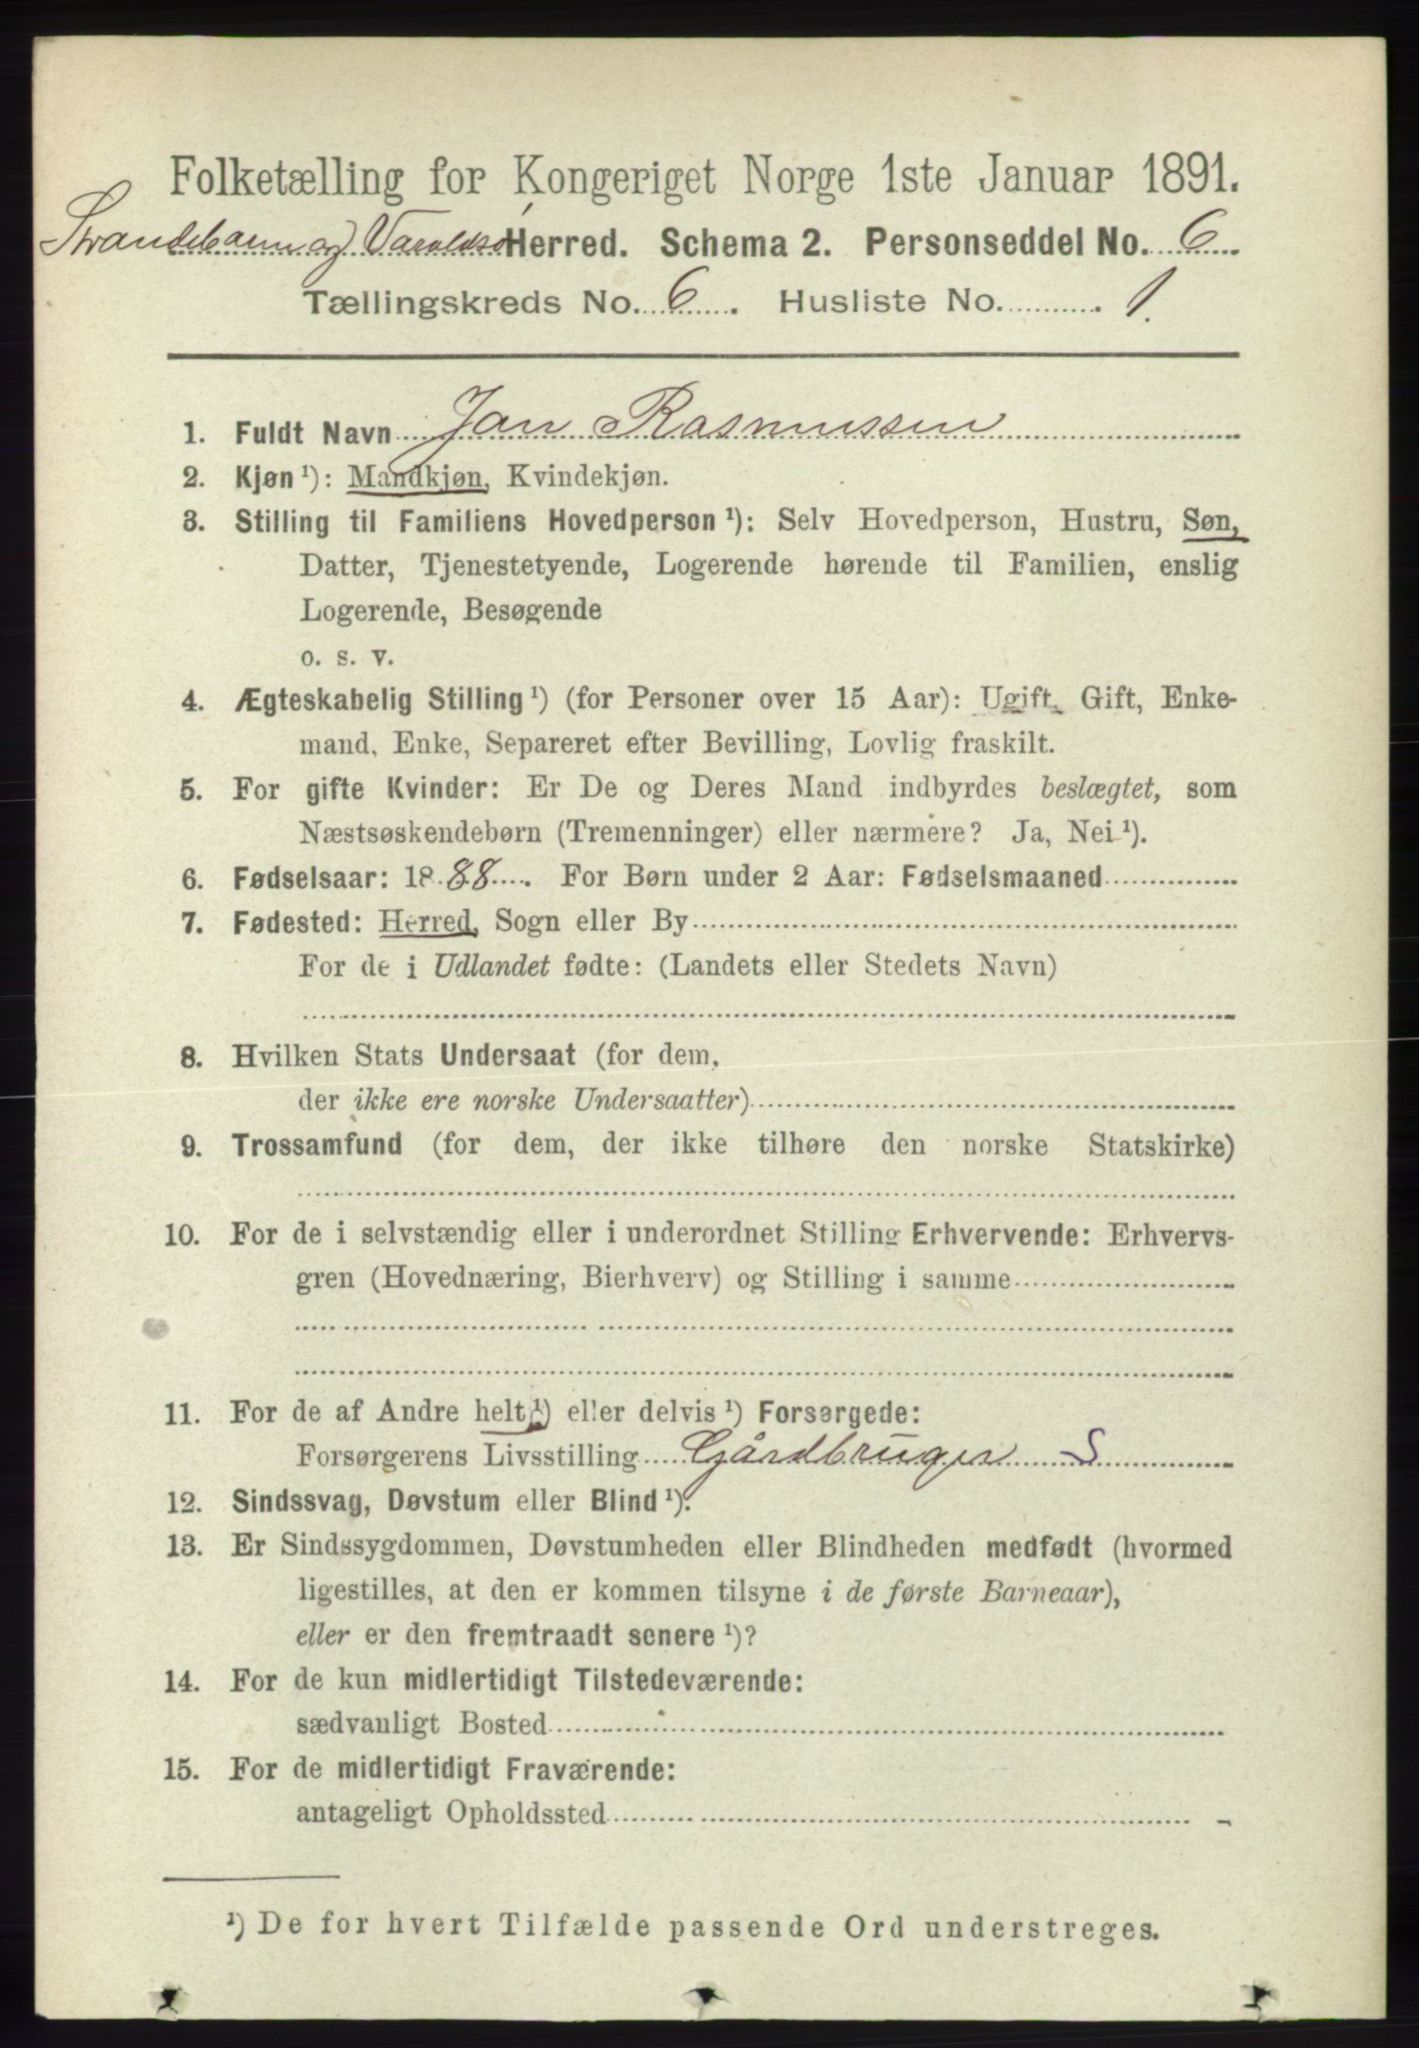 Folketælling for Kongeriget Norge 1ste Januar 1891.
Strandebarm og Varaldsø Herred. Schema 2. Personseddel No. 6
Tællingskreds No. 6. Husliste No. 1.
1. Fuldt Navn Jan Rasmussen
2. Kjøn ¹): Mandkjøn, Kvindekjøn.
3. Stilling til Familiens Hovedperson ¹): Selv Hovedperson, Hustru, Søn,
Datter, Tjenestetyende, Logerende hørende til Familien, enslig
Logerende, Besøgende
o. s. v.
4. Ægteskabelig Stilling ¹) (for Personer over 15 Aar): Ugift, Gift, Enke-
mand, Enke, Separeret efter Bevilling, Lovlig fraskilt.
5. For gifte Kvinder: Er De og Deres Mand indbyrdes beslægtet, som
Næstsøskendebørn (Tremenninger) eller nærmere? Ja, Nei ¹).
6. Fødselsaar: 1888. For Børn under 2 Aar: Fødselsmaaned
7. Fødested: Herred, Sogn eller By
For de i Udlandet fødte: (Landets eller Stedets Navn)
8. Hvilken Stats Undersaat (for dem,
der ikke ere norske Undersaatter)
9. Trossamfund (for dem, der ikke tilhøre den norske Statskirke)
10. For de i selvstændig eller i underordnet Stilling Erhvervende: Erhvervs-
gren (Hovednæring, Bierhverv) og Stilling i samme
11. For de af Andre helt ¹) eller delvis ¹) Forsørgede:
Forsørgerens Livsstilling Gårdbruger S
12. Sindssvag, Døvstum eller Blind ¹).
13. Er Sindssygdommen, Døvstumheden eller Blindheden medfødt (hvormed
ligestilles, at den er kommen tilsyne i de første Barneaar),
eller er den fremtraadt senere ¹)?
14. For de kun midlertidigt Tilstedeværende:
sædvanligt Bosted
15. For de midlertidigt Fraværende:
antageligt Opholdssted
¹) De for hvert Tilfælde passende Ord understreges.